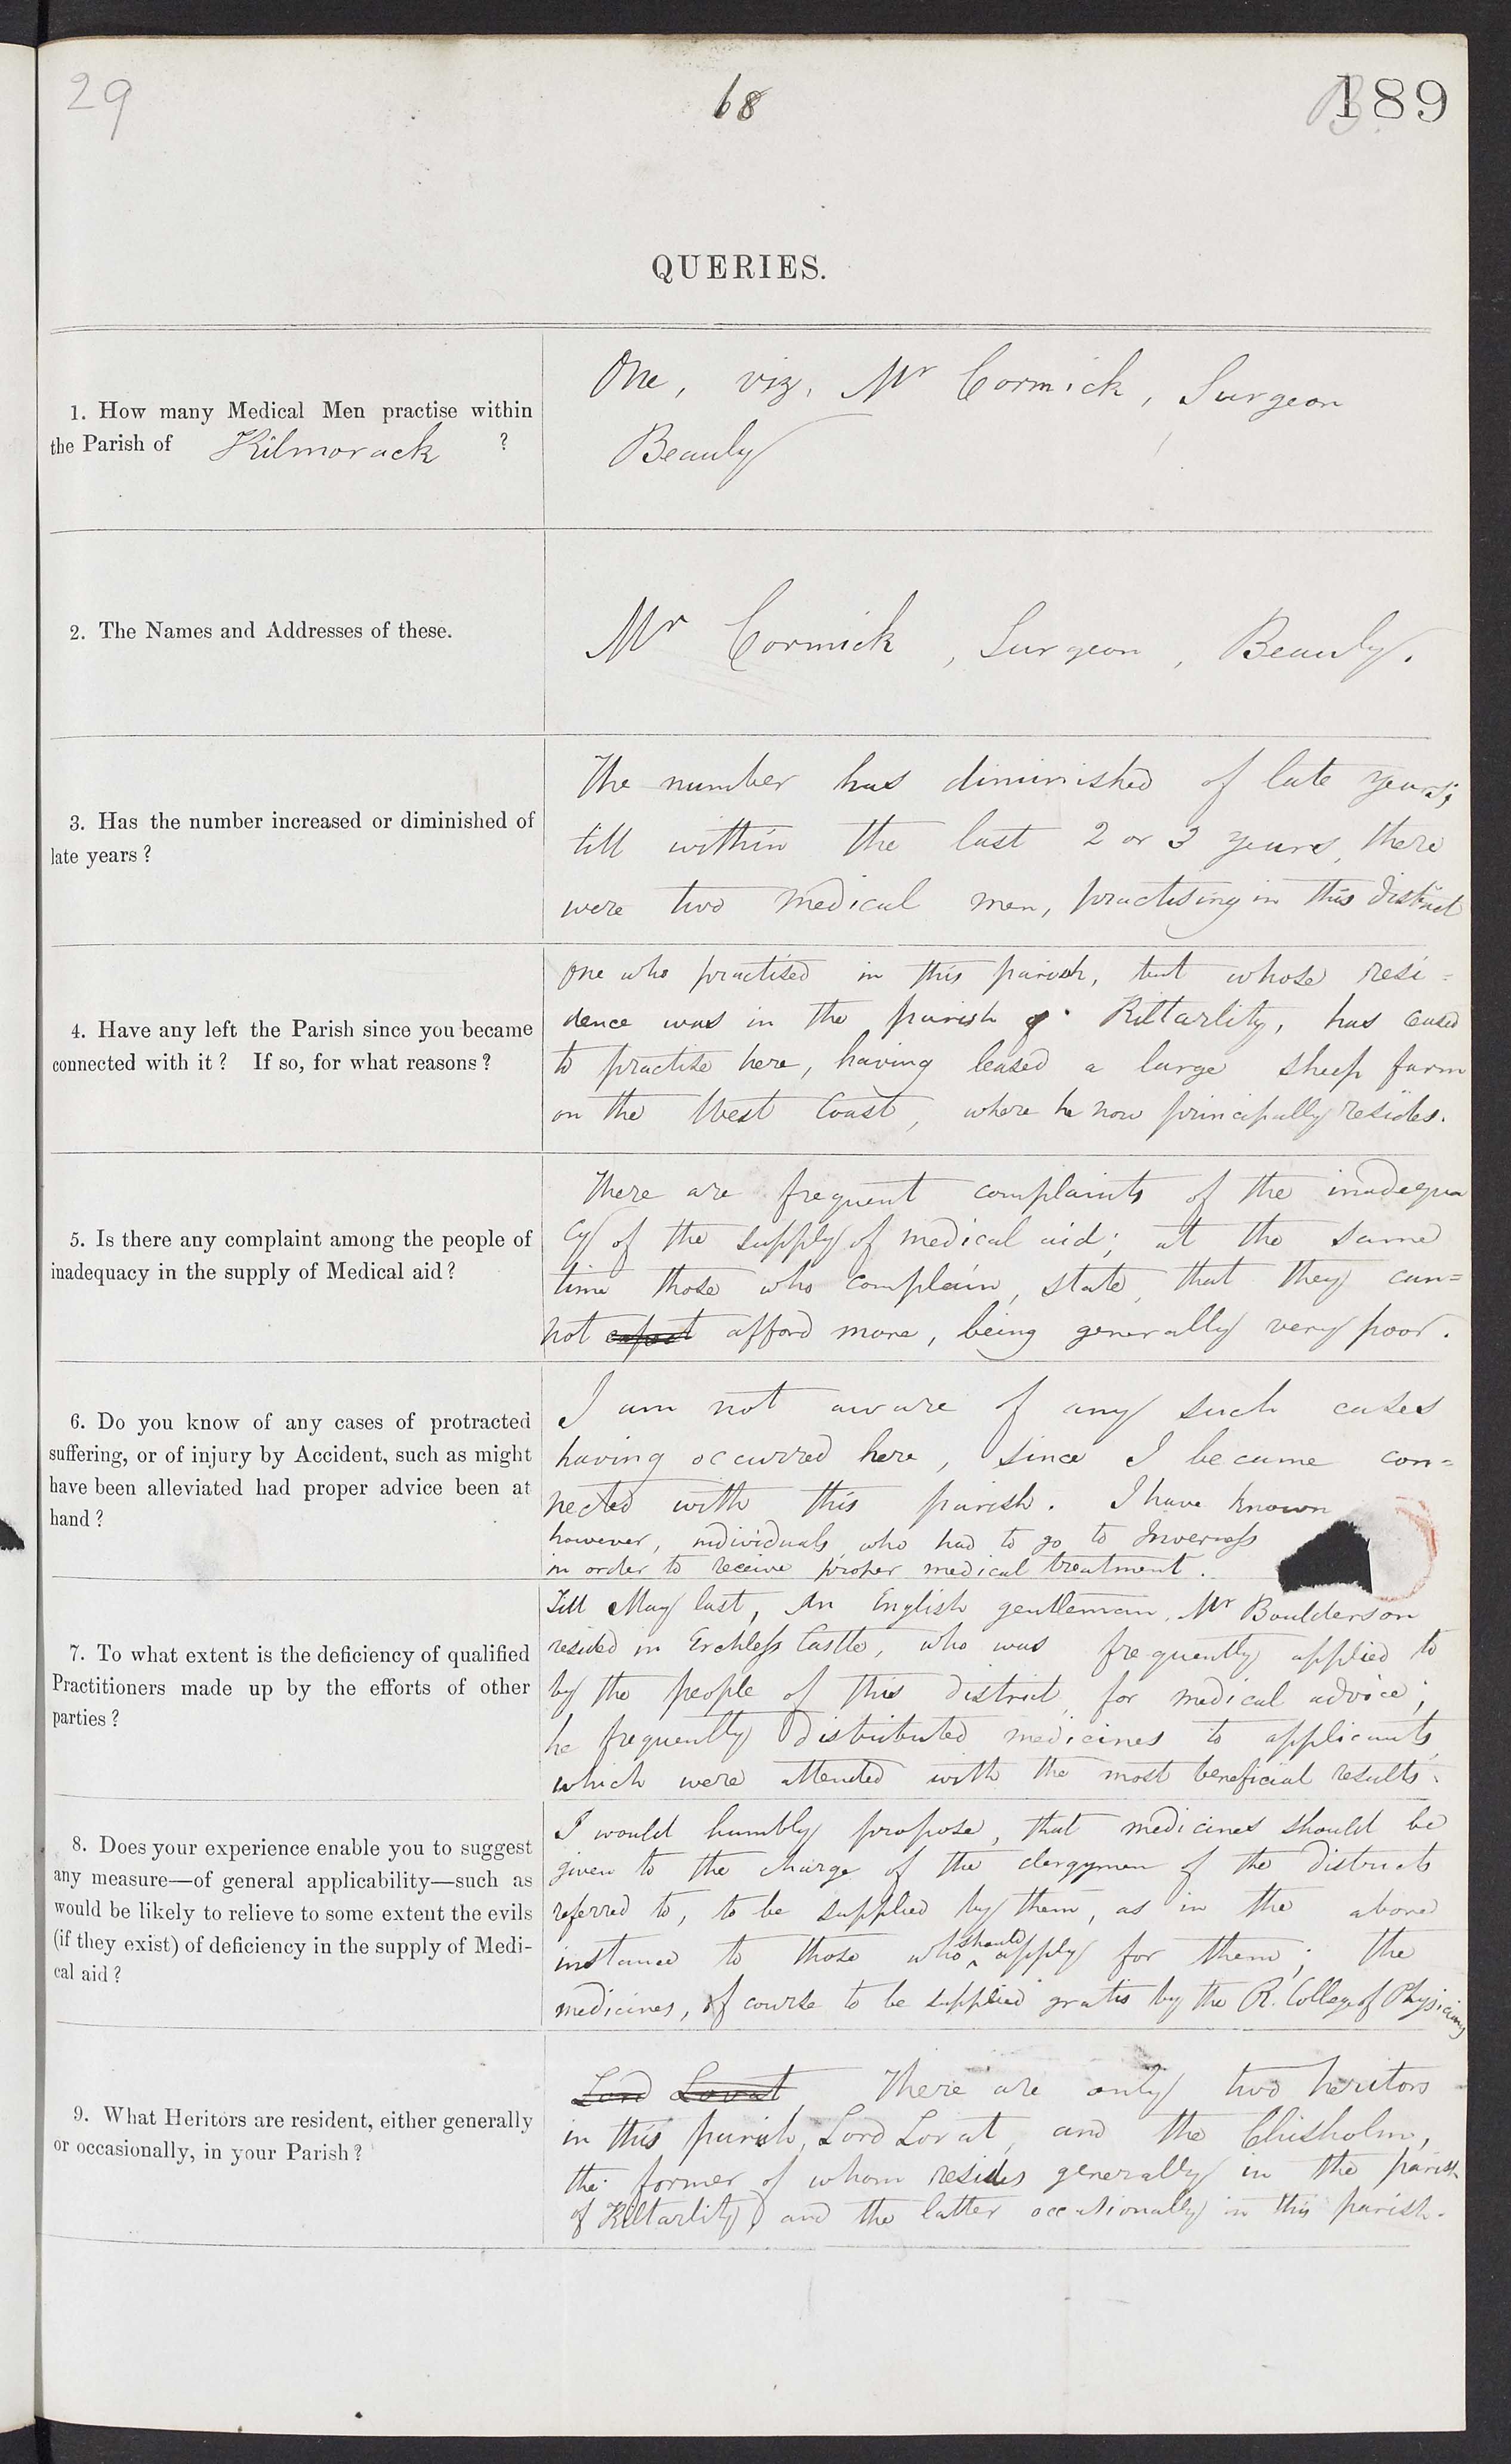 29
68
189
QUERIES.
1. How many Medical Men practise within
the Parish of Kilmorack ?
One, viz, Mr Cormick, Surgeon
Beauly
2. The Names and Addresses of these.
Mr Cormick, Surgeon, Beauly.
3. Has the number increased or diminished of
late years?
The number has diminished of late years;
till within the last 2 or 3 years, there
were two medical men, practising in this district
4. Have any left the Parish since you became
connected with it? If so, for what reasons?
One who practised in this parish, but whose resi=
dence was in the parish of Kiltarlity, has ceased
to practise here, having leased a large sheep farm
on the West Coast, where he now principally resides.
5. Is there any complaint among the people of
inadequacy in the supply of Medical aid?
There are frequent complaints of the inadequa
cy of the supply of medical aid; at the same
time those who complain, state, that they can=
not expect afford more, being generally very poor.
6. Do you know of any cases of protracted
suffering, or of injury by Accident, such as might
have been alleviated had proper advice been at
hand?
I am not aware of any such cases
having occurred here, since I became con=
nected with this parish. I have known
however, individuals who had to go to Inverness
in order to receive proper medical treatment.
7. To what extent is the deficiency of qualified
Practitioners made up by the efforts of other
parties?
Till May last, An English gentleman, Mr Boulderson
resided in Erchless Castle, who was frequently applied to
by the people of this district for medical advice;
he frequently distributed medicines to applicants
which were attended with the most beneficial results.
8. Does your experience enable you to suggest
any measure—of general applicability—such as
would be likely to relieve to some extent the evils
(if they exist) of deficiency in the supply of Medi-
cal aid?
I would humbly propose, that medicines should be
given to the charge of the clergymen of the districts
referred to, to be supplied by them, as in the above
instance to those who should apply for them; the
medicines, of course to be supplied gratis by the R. College of Physicians
9. What Heritors are resident, either generally
or occasionally, in your Parish?
Lord Lovat There are only two heritors
in this parish, Lord Lovat, and the Chisholm,
the former of whom resides generally in the parish
of Kiltarlity, and the latter occasionally in this parish.